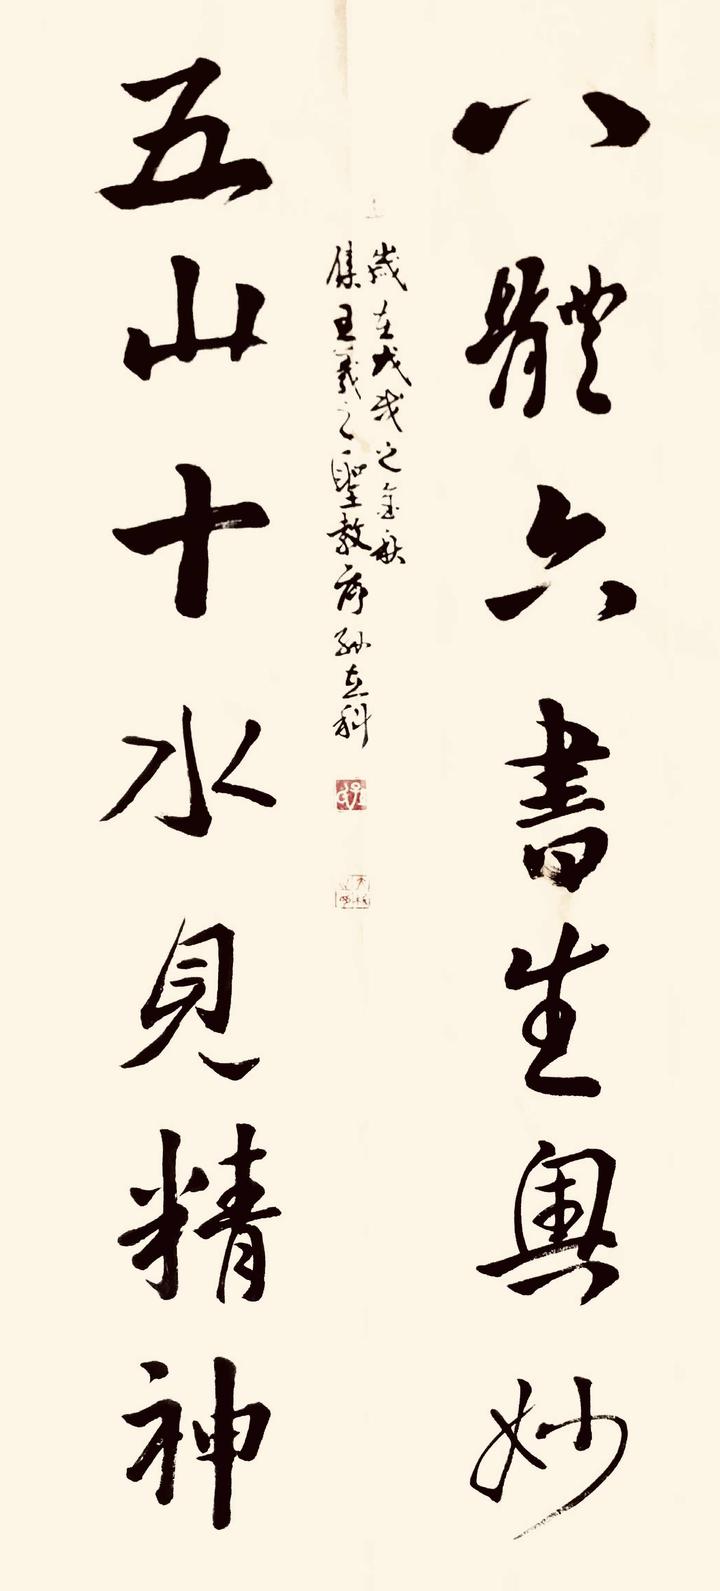 八體六書生奧妙
五山十水見精神
歲在戊戌之金秋
集王羲之聖教序孫立科